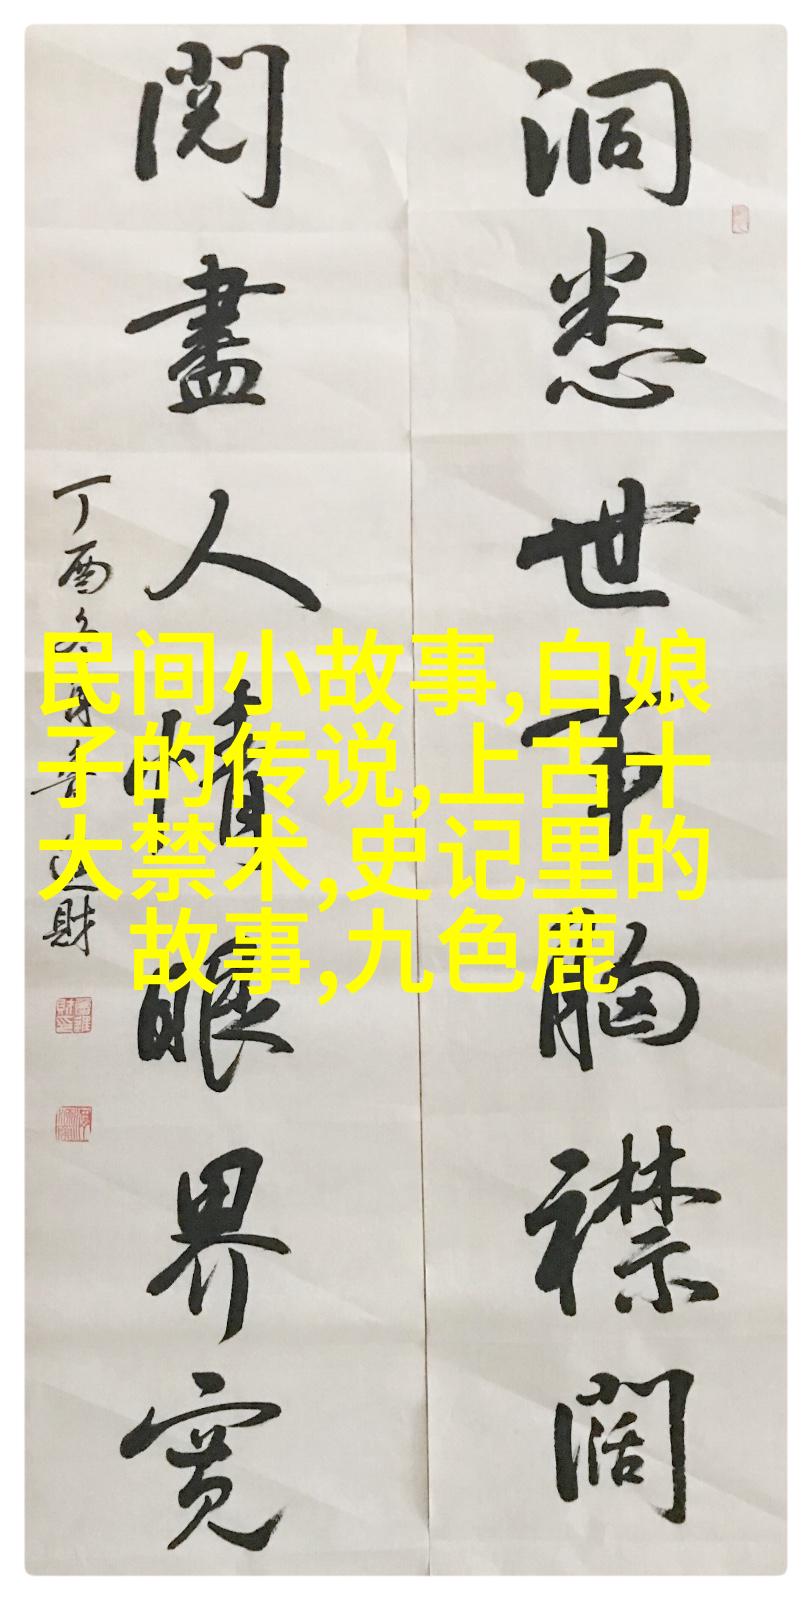 洞悉世事胸襟闊
閱盡人情眼界寬
丁酉冬月
財
民间小故事,白娘
子的传说,上古十
大禁术,史记里的
故事,九色鹿